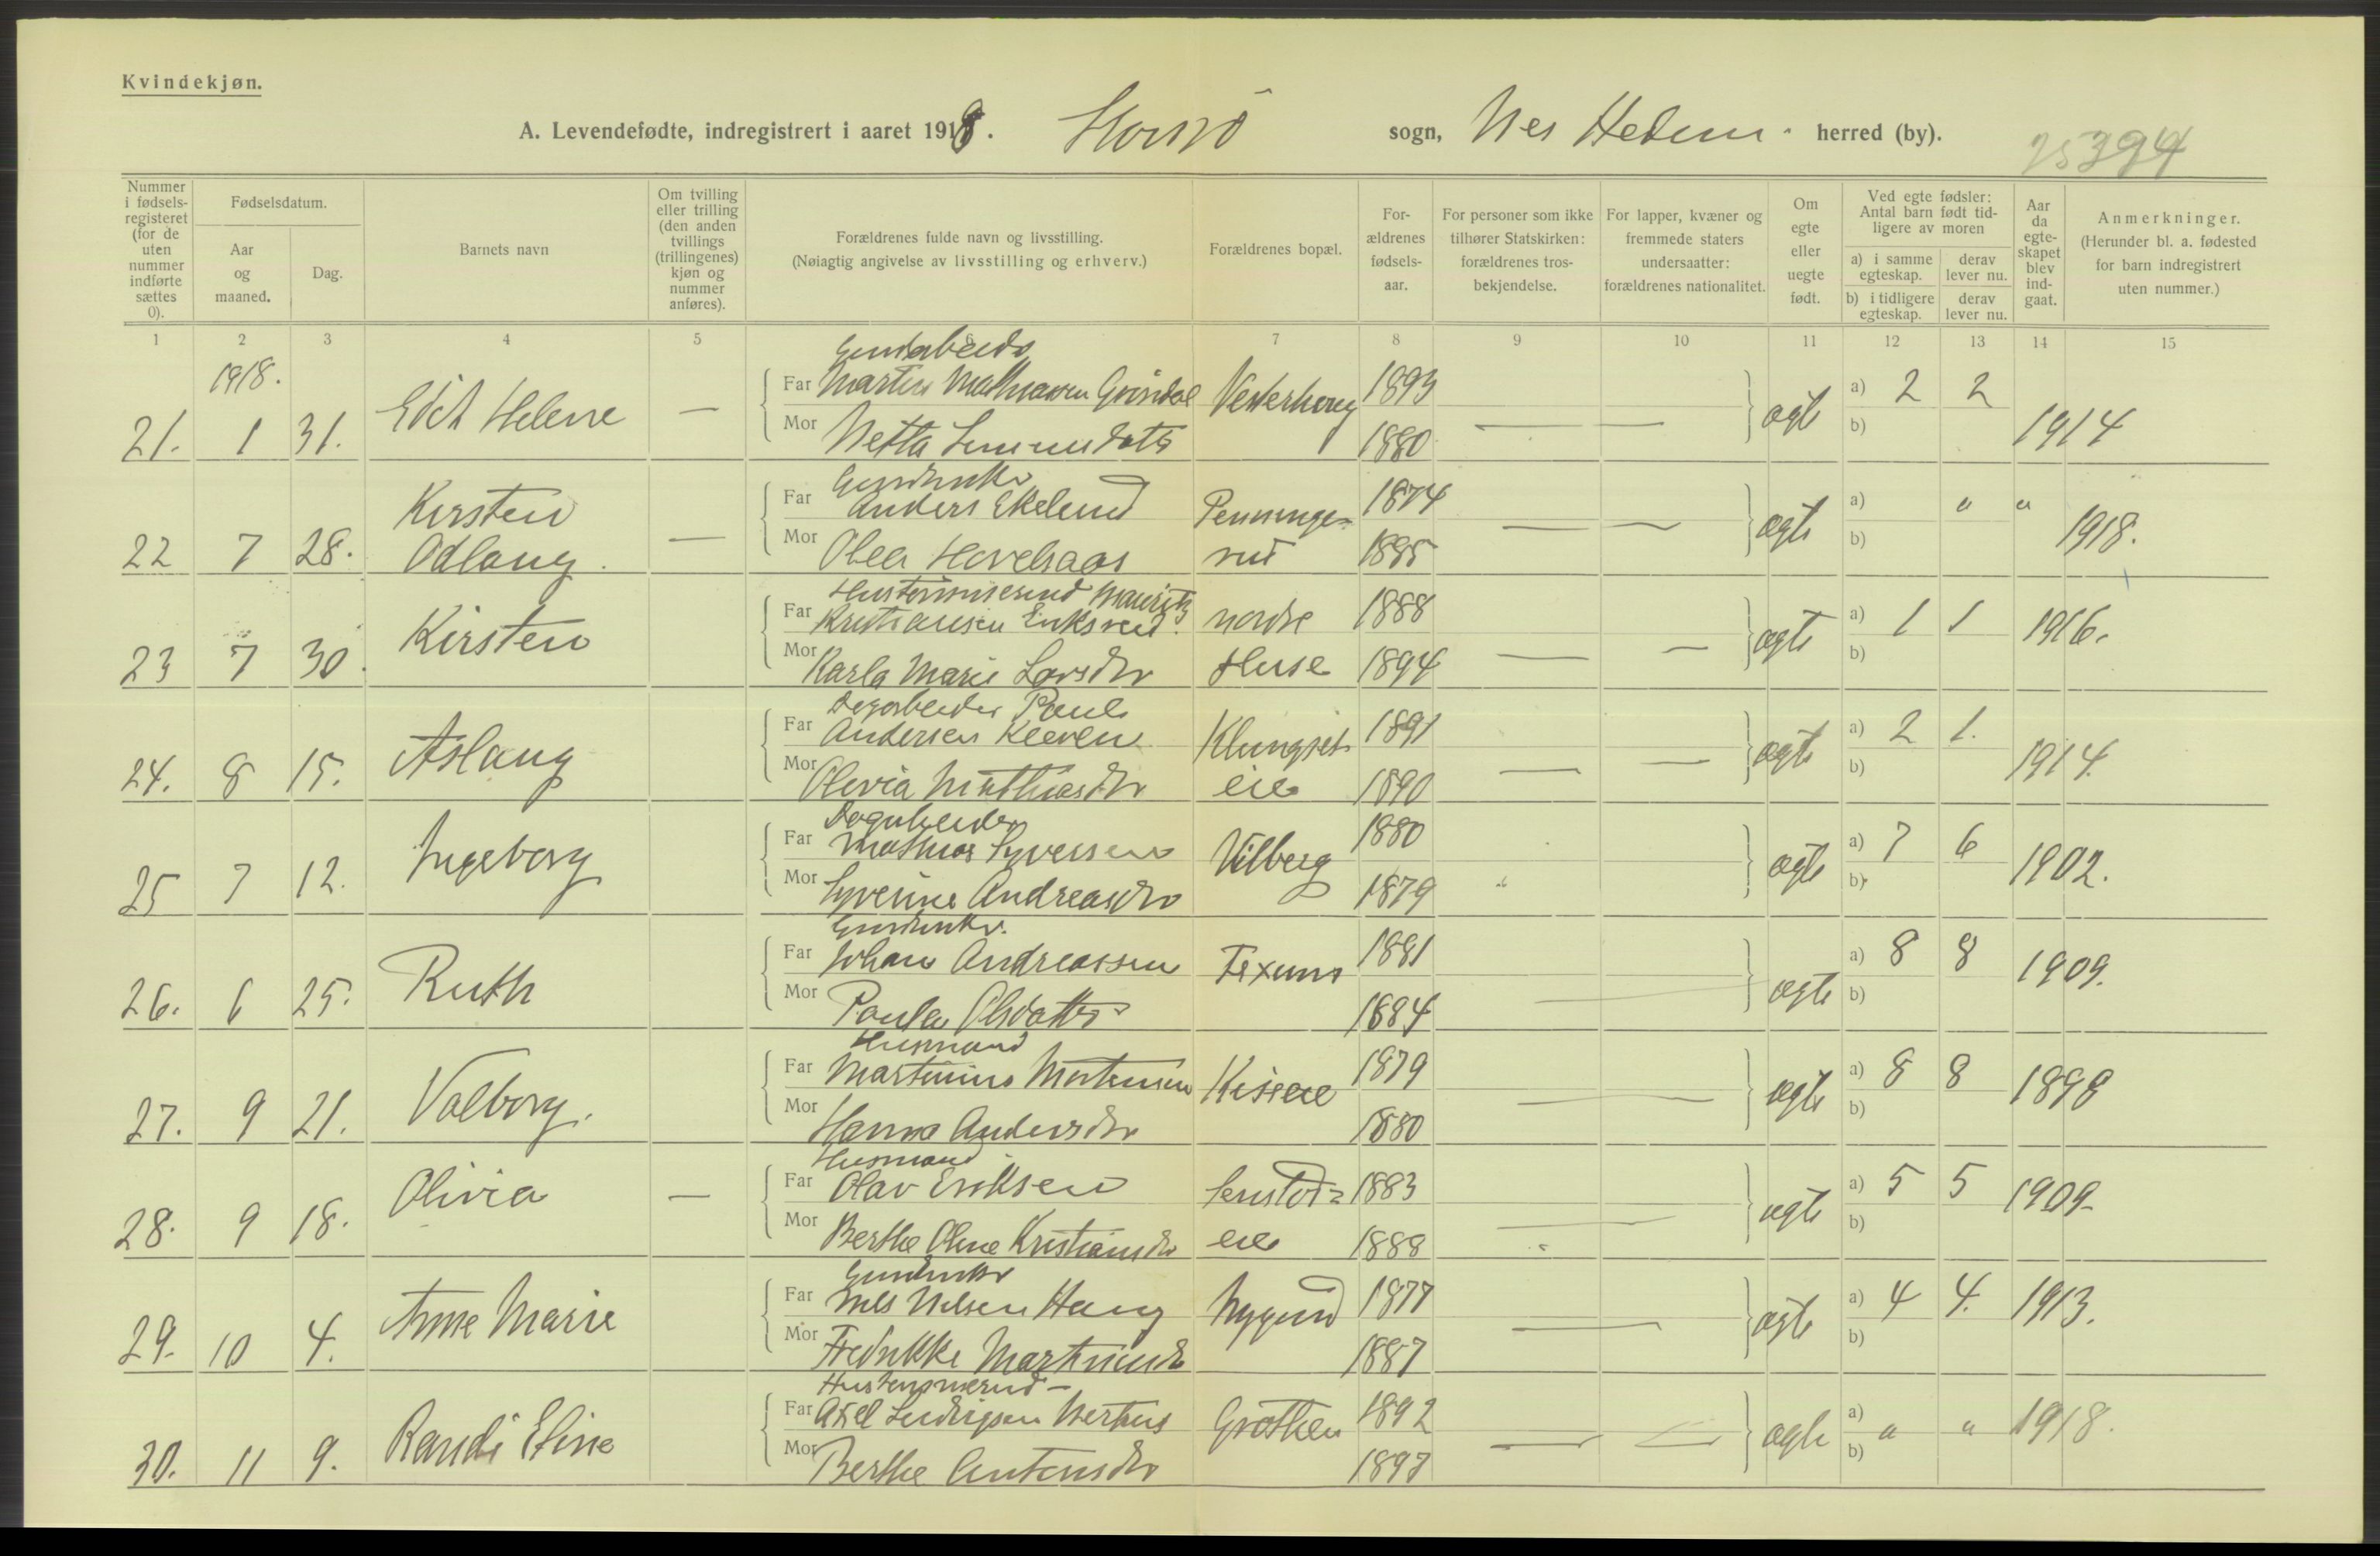 Kvindekjøn.
A. Levendefødte, indregistrert i aaret 1918. sogn, Nes Hedm. herred (by). 25394
Nummer i fødselsregisteret (for de uten nummer indførte sættes 0).
Fødselsdatum.
Aar og maaned.
Dag.
Barnets navn
Om tvilling eller trilling (den anden tvillings (trillingenes) kjøn og nummer anføres).
Forældrenes fulde navn og livsstilling.
(Nøiagtig angivelse av livsstilling og erhverv.)
Forældrenes bopæl.
Forældrenes fødselsaar.
For personer som ikke tilhører Statskirken: forældrenes trosbekjendelse.
For lapper, kvæner og fremmede staters undersaatter: forældrenes nationalitet.
Om egte eller uegte født.
Ved egte fødsler: Antal barn født tidligere av moren
a) i samme egteskap.
derav lever nu.
b) i tidligere egteskap.
derav lever nu.
Aar da egteskapet blev indgaat.
Anmerkninger.
(Herunder bl. a. fødested for barn indregistrert uten nummer.)
1 2 3 4 5 6 7 8 9 10 11 12 13 14 15
1918.
21. 1 31. Edit Helene —
Far Martin Mathiassen Grindal 1893
Mor Netta 1880
— — egte a) 2 2 b) 1914
22 7 28. Kirsten Odlaug. —
Far Anders Ekelund Penningsrud 1874
Mor Olea Hovelsaas 1895
— — egte a) " " b) 1918.
23 7 30. Kirsten
Far Mauritz Kristiansen Eriksrud. nordre Huse 1888
Mor Karla Marie Larsdtr 1894
— — egte a) 1 1 b) 1916.
24. 8 15. Aslaug
Dagarbeider Paul
Far Andersen Kleven Klungset eie 1891
Mor Olevia Mathiasdtr 1890
— — egte a) 2 1. b) 1914.
25 7 12. Ingeborg
Dagarbeider
Far Mathias Syversen Vilberg 1880
Mor Syverine Andreasdtr 1879
egte a) 7 6 b) 1902.
26. 6 25. Ruth
Far Johan Andreassen 1881
Mor Paula Olsdatter 1884
— egte a) 8 8 b) 1909.
27. 9 21. Valborg.
Husmand
Far Martinius Mortensen Kiseeie 1879
Mor Hanna Andersdtr 1880
— egte a) 8 8 b) 1898
28. 9 18. Olivia —
Husmand
Far Olav Eriksen eie 1883
Mor Berthe Oline Kristiansdtr 1888
— egte a) 5 5 b) 1909.
29. 10 4. Anne Marie
Far Nils Nilsen Haug Nygaard 1877
Mor Fredrikke Martinsdtr 1887
— egte a) 4 4. b) 1913.
30. 11 9. Randi Eline
Far Axel Ludvigsen 1892
Mor Berthe Antonsdtr 1897
— — egte a) " " b) 1918.